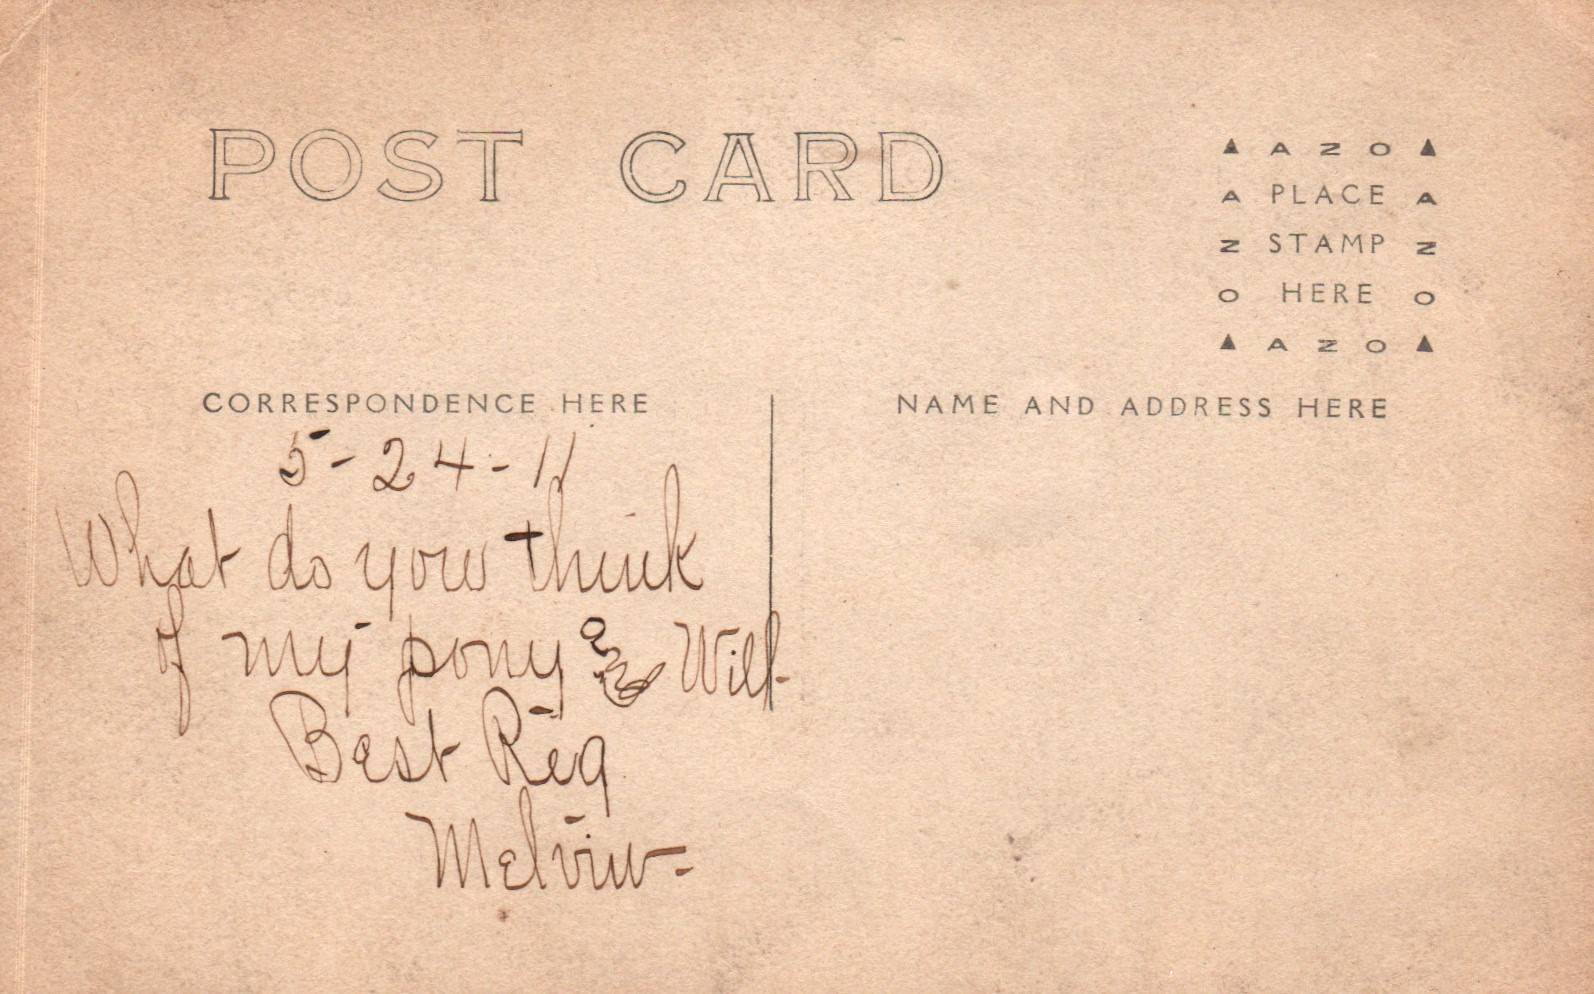 POST CARD
▲ A Z O ▲
A PLACE A
Z STAMP Z
O HERE O
▲ A Z O ▲
CORRESPONDENCE HERE
NAME AND ADDRESS HERE
5-24-11
What do you think
of my pony and Will-
Best Reg
Melvin-